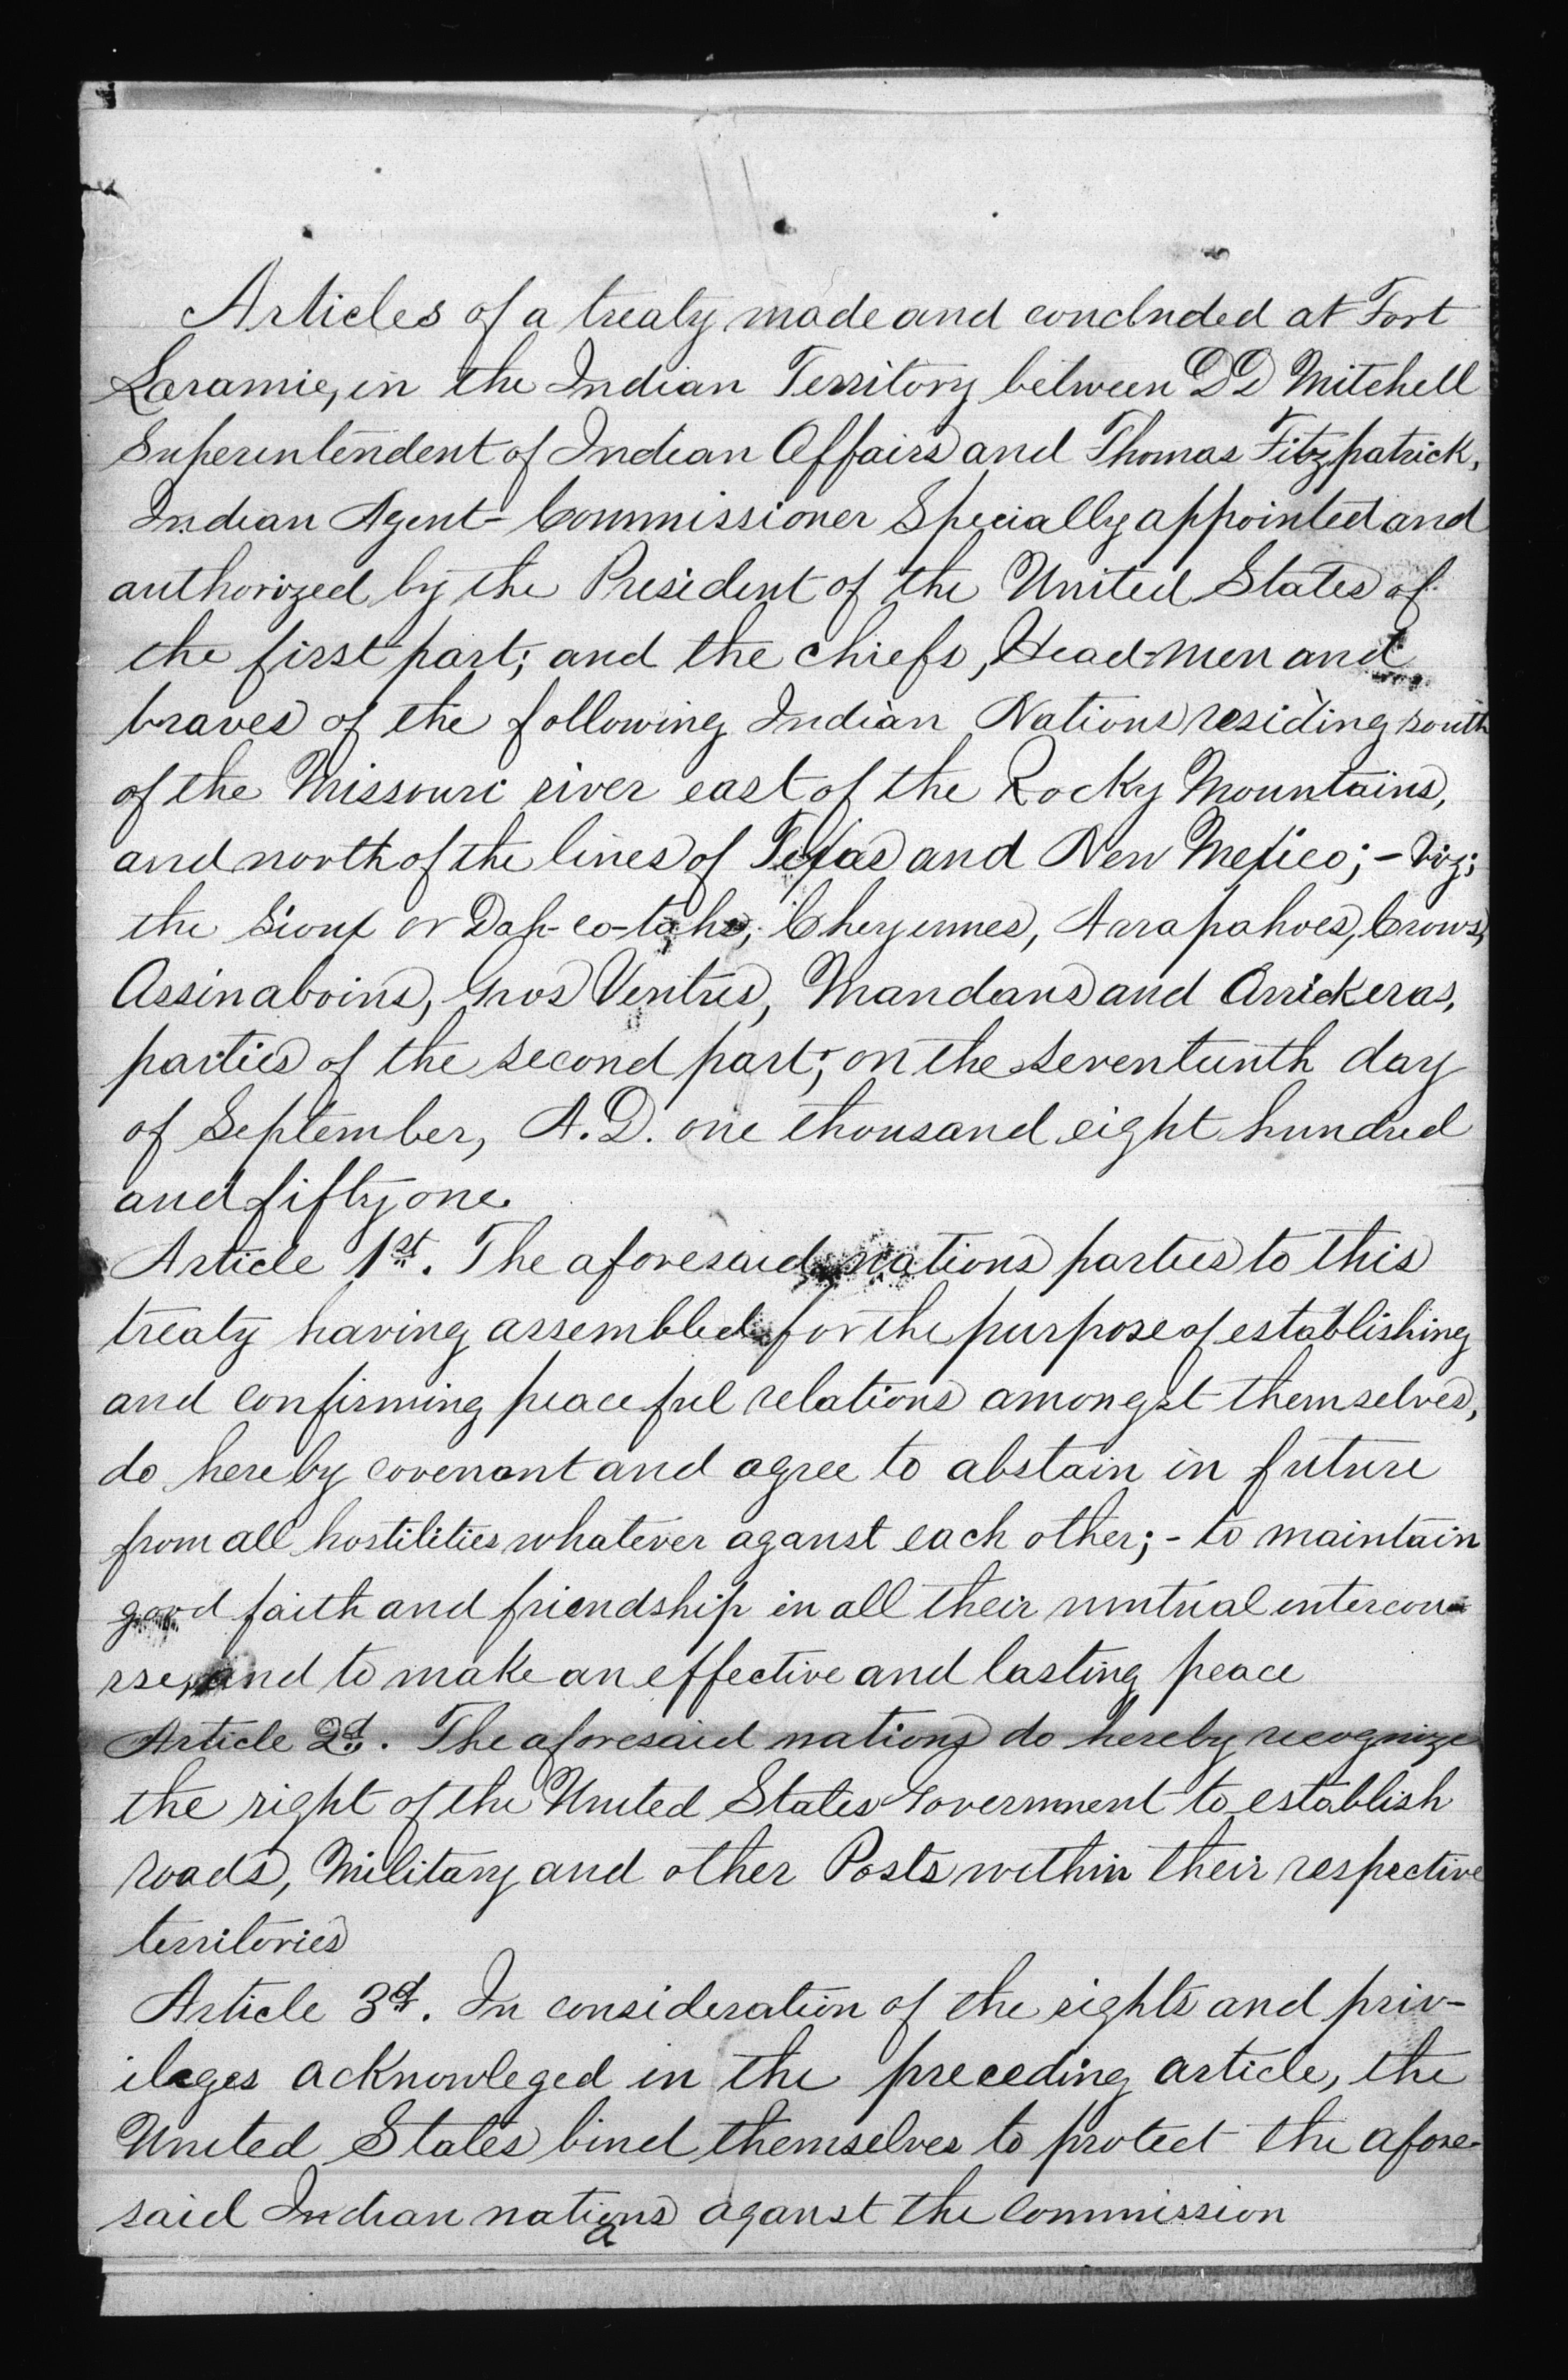 Articles of a treaty made and concluded at Fort
Laramie, in the Indian Territory between DD Mitchell
Superintendent of Indian Affairs and Thomas Fitzpatrick,
Indian Agent - Commissioner Specially appointed and
authorized by the President of the United States of
the first part; and the chiefs, Head-men and
braves of the following Indian Nations residing south
of the Missouri river east of the Rocky Mountains,
and north of the lines of Texas and New Mexico; - viz;
the Sioux or Dah-co-tahs, Cheyennes, Arrapahoes, Crows,
Assinaboins, Gros Ventres, Mandans and Arrickeras,
parties of the second part; on the seventeenth day
of September, A.D. one thousand eight hundred
and fifty one.
Article 1st. The aforesaid nations parties to this
treaty having assembled for the purpose of establishing
and confirming peaceful relations amongst themselves,
do hereby covenant and agree to abstain in future
from all hostilities whatever aganst each other; - to maintain
good faith and friendship in all their mutual intercou-
rse, and to make an effective and lasting peace
Article 2d. The aforesaid nations do hereby recognize
the right of the United States Government to establish
roads, Military and other Posts within their respective
territories
Article 3d. In consideration of the rights and priv-
ileges acknowleged in the preceding article, the
United States bind themselves to protect the afore-
said Indian nations aganst the commission
a